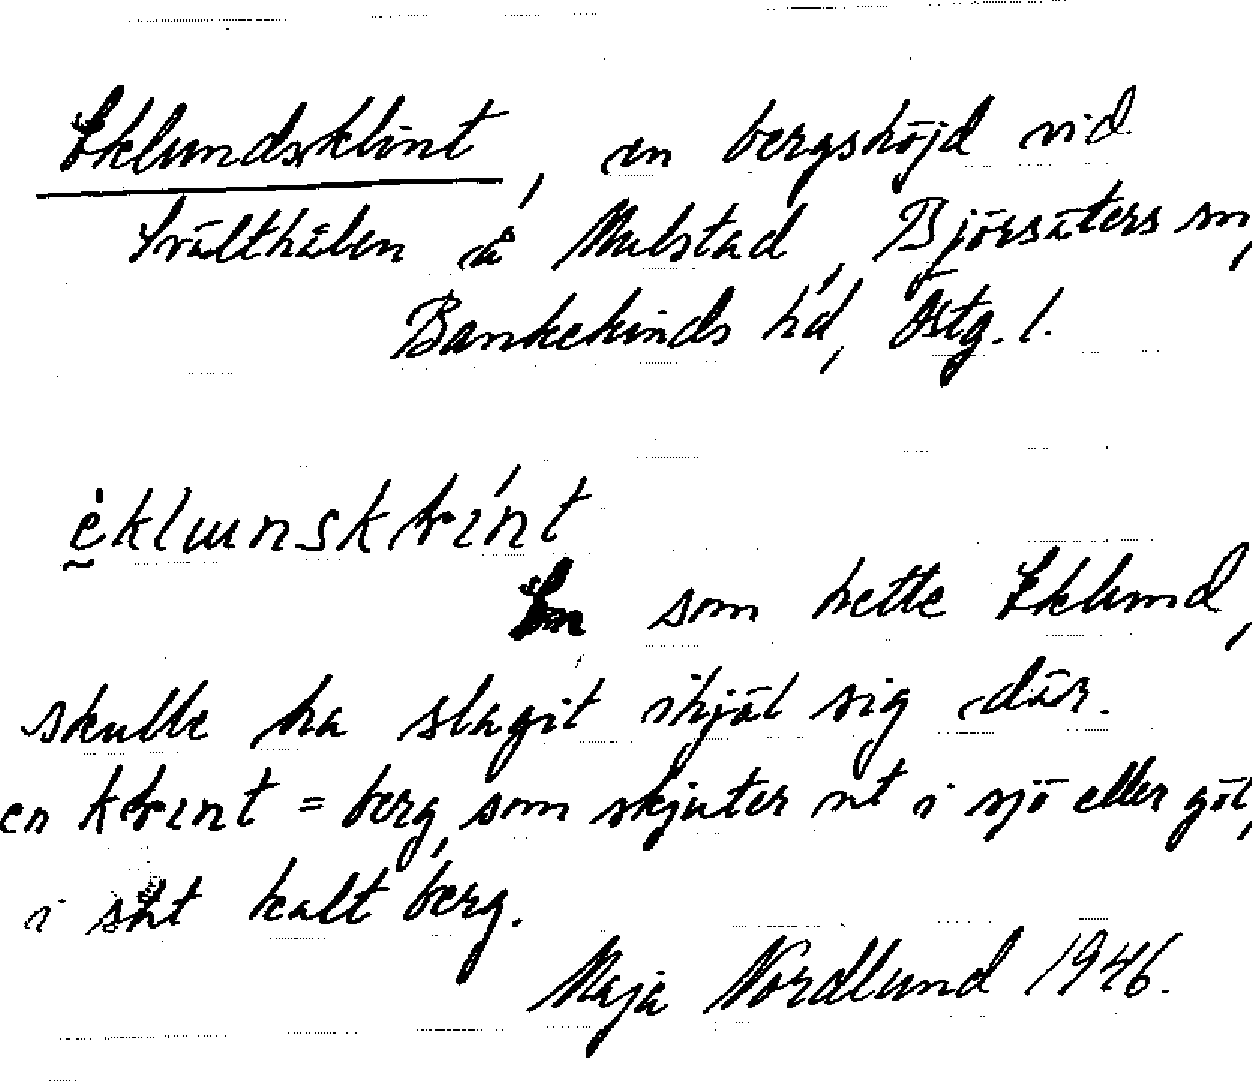 Eklundsklint, en bergshöjd vid
Svälthålen å Mulstad, Björsäters sn,
Bankekinds hd, Östg. l.
En som hette Eklund,
skulle ha slagit ihjäl sig där.
en klint = berg, som skjuter ut i sjö eller göl,
i sht kalt berg.
Maja Nordlund 1946.